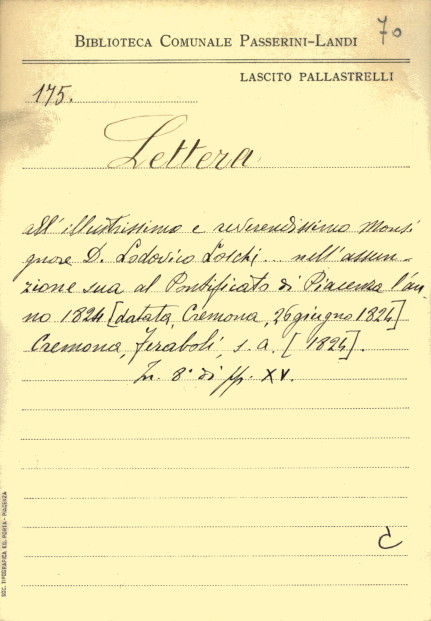 70
BIBLIOTECA COMUNALE PASSERINI-LANDI
LASCITO PALLASTRELLI
175.
Lettera
all'illustrissimo e reverendissimo Monsi
gnore D. Lodovico Loschi... nell'assun-
zione sua al Pontificato di Piacenza l'an
no 1824 [datata, Cremona, 26 giugno 1824]
Cremona, Feraboli, s. a. [1824].
In 8° di pp. XV.
C
SOC. TIPOGRAFICA ED. PORTA - PIACENZA